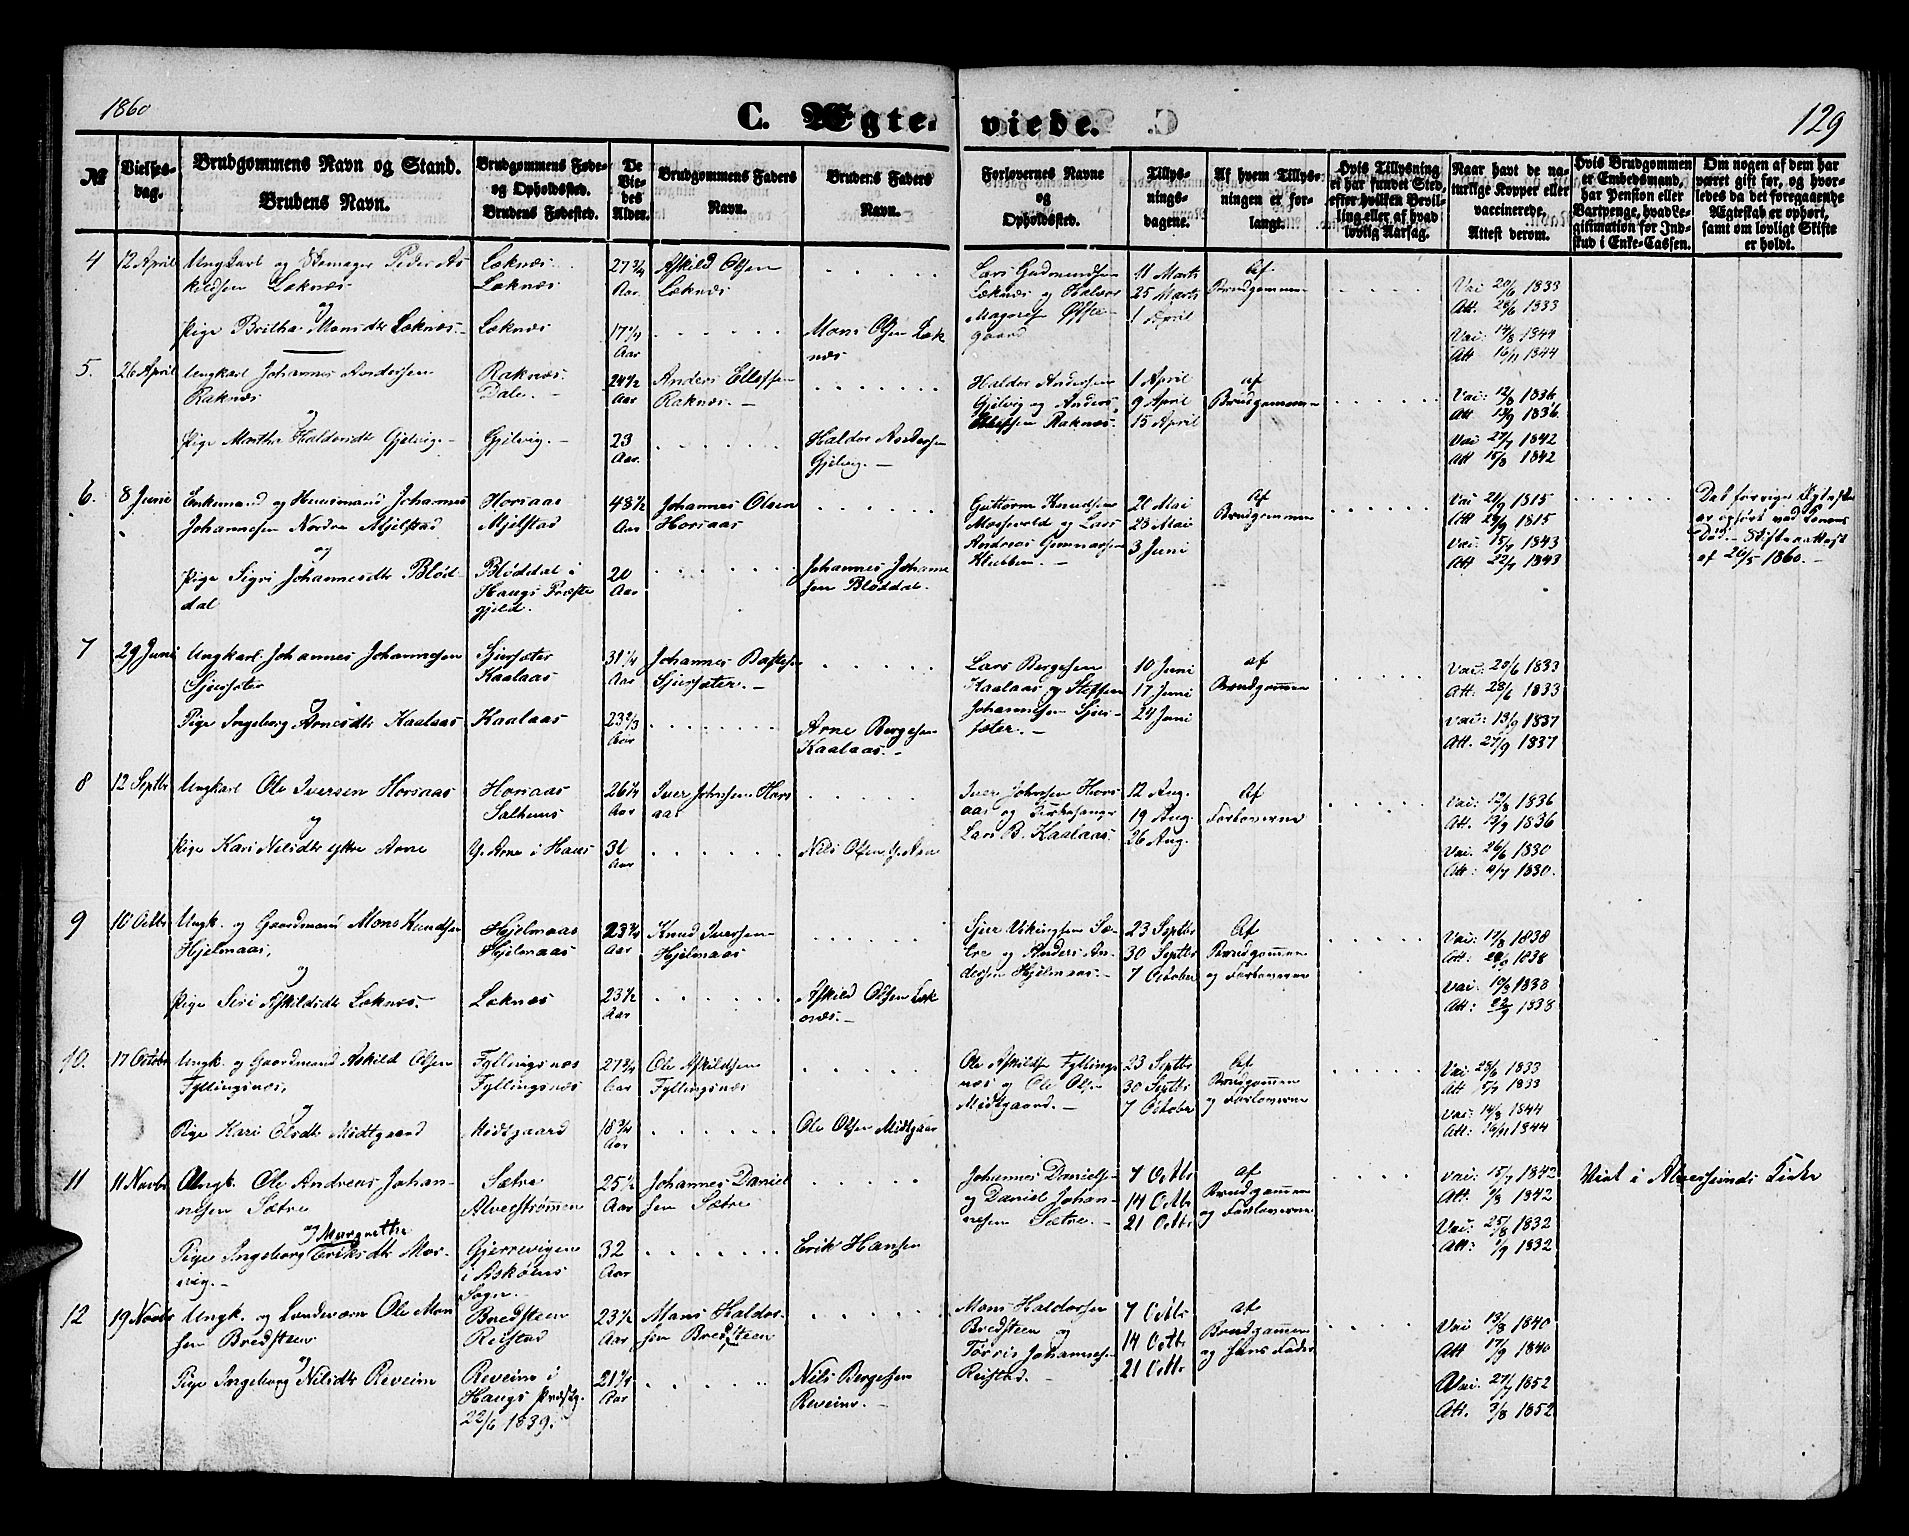 1860
C. Ægte-
viede.
129
№
Vielses-
dag.
Brudgommens Navn og Stand.
Brudens Navn.
Brudgommens Føde-
og Opholdssted.
Brudens Fødested.
De
Vie-
des
Alder.
Brudgommens Faders
Navn.
Brudens Faders
Navn.
Forlovernes Navne
og
Opholdssted.
Tillys-
nings-
dagene.
Af hvem Tillys-
ningen er for-
langt.
Hvis Tillysning
ei har fundet Sted,
efter hvilken Bevil-
ling eller af hvad
lovlig Aarsag.
Naar havt de na-
turlige Kopper eller
vaccinerede.
Attest derom.
Hvis Brudgommen
er Embedsmand,
har Pension eller
Vartpenge, hvad Le-
gitimation for Ind-
skud i Enke-Cassen.
Om nogen af dem har
været gift før, og hvor-
ledes da det foregaaende
Ægteskab er ophørt,
samt om lovligt Skifte
er holdt.
4
12 April
Ungkarl og Peder As
kildsen Læknæs
og
Pige Britha Monsdtr Læknæs
Læknæs
Læknæs
Læknæs
27 3/4
Aar
17 1/4
Aar
Askild Olsen
Læknæs
Mons Olsen Læk
næs
Lars Gudmundsen
Læknæs og Haldor
Magnesen
gaard
11 Marts
25 Marts
1 April
af
Brudgommen
Vai 20/6 1833
Att. 28/6 1833
Vai: 14/8 1844
Att 16/11 1844
5.
26 April
Ungkarl Johannes Andersen
Raknæs
og
Pige Martha Haldorsdtr Gjelvig
Raknæs
Dale
Gjelvig
24 1/2
Aar
23
Aar
Anders Ellefsen
Raknæs
Haldor Andersen
Gjelvig
Haldor Andersen
Gjelvig og Anders
Ellefsen Raknæs
1 April
9 April
15 April
af
Brudgommen
Vai: 12/8 1836
Att. 13/9 1836
Vai 27/7 1842
Att 15/8 1842
6.
8 Juni
Enkemand og Huusmand Johannes
Johannesen Nordre Mjelstad
og
Pige Sigri Johannesdtr Blød
dal
Horsaas
Mjelstad
Bløddal i
Haugs Præste
gjeld.
48 1/2
Aar
20
Aar
Johannes Olsen
Horsaas
Johannes Johanne
sen Bløddal
Guttorm Knudsen
Mosevold og Lars
Andreas Gunnarsen
Klubben
20 Mai
23 Mai
3 Juni
Af
Brudgommen
Vai 21/9 1815
Att 29/9 1815
Vai: 15/7 1843
Att 22/7 1843
Det forrige Ægtesk
er ophørt ved Konens
Død. Skifteattest
af 26/5 1860.
7
29 Juni
Ungkarl Johannes Johannesen
Sjursæter
og
Pige Ingeborg Arnesdtr Kaalaas
Sjursæter
Kaalaas
Kaalaas
31 1/4
Aar
23 2/3
Aar
Johannes
Sjursæter
Arne Bergesen
Kaalaas
Lars Bergesen
Kaalaas og Steffen
Johannesen Sjur-
sæter
10 Juni
17 Juni
24 Juni
af
Brudgommen
Vai: 20/6 1833
Att. 28/6 1833
Vai: 13/9 1837
Att. 27/9 1837
8
12 Septbr
Ungkarl Ole Iversen Horsaas
og
Pige Kari Nilsdtr ytre Arne
Horsaas
Salhuus
Y. Arne i Haus
26 1/4
Aar
31
Aar
Iver Johnsen Hors
aas
Nils Olsen Y. Arne
Iver Johnsen Hors
aas og Kirkesanger
Lars B. Kaalaas
12 Aug.
19 Aug.
26 Aug.
Af
Forloverne
Vai: 12/8 1836
Att. 13/9 1836
Vai. 26/6 1830
Att. 4/7 1830.
9
10 Octbr
Ungk. og Gaardmand Mons Knudsen
Hjelmaas,
og
Pige Siri Askildsdtr Læknæs.
Hjelmaas
Hjelmaas
Læknæs
23 3/4
Aar
23 1/2
Aar
Knud Iversen
Hjelmaas
Askild Olsen Læk
næs.
Sjur Vikingsen Sæ-
tre og Anders An-
dersen Hjelmaas
23 Septbr
30 Septbr
7 October
Af
Brudgommen
og Forloverne
Vai: 17/8 1838
Att: 1838
Vai: 19/8 1838
Att: 1838
10.
17 October
Ungk. og Gaardmand Askild Olsen
Fyllingsnæs,
og
Pige Kari Olsdtr Midtgaard
Fyllingsnæs
Fyllingsnæs
Midtgaard
27 3/4
Aar
18 3/4
Aar
Ole Askildsen
Fyllingsnæs
Ole Olsen Midtgaar
Ole Askilds Fyllings
næs og Ole Olsen
Midtgaard.
23 Septbr
30 Septbr
7 October
Af
Brudgommen
og Forloverne
Vai: 28/6 1833
Att 5/7 1833
Vai: 14/8 1844
Att: 16/11 1844
11
11 Novbr
Ungk. Ole Andreas Johan-
nesen Sætre
og Margrethe
Pige Ingeborg Eriksdtr Mor-
vig.
Sætre
Alverstrømmen
Gjerrevigen
i Askøens
Sogn.
25 1/2
Aar
32
Aar
Johannes Daniel
sen Sætre
Erik Hansen
Johannes Danielsen
og Daniel Johan-
nesen Sætre.
7 Octbr
14 Octbr
21 Octbr
af
Brudgommen
og Forloverne
Vai: 15/7 1842
Att: 7/8 1842
Vai: 25/8 1832
Att: 1/9 1832
Viet i Alverssunds Kirke
12
19 Novbr
Ungk. og Landværn Ole Mon
sen Bredsteen
og
Pige Ingeborg Nilsdtr Reveim
Bredsteen
Reistad
Reveim i
Haugs Præstg.
22/6 1839.
23 1/2
Aar
21 1/4
Aar
Mons Haldor-
sen Bredsteen
Nils Bergesen
Reveim.
Mons Haldorsen
Bredsteen og
Tørris Johannesen
Reistad.
7 Octbr
14 Octbr
21 Octbr
af
Brudgommen
og hans Fader
Vai 13/8 1840
Att 17/9 1840
Vai: 27/7 1852
Att. 3/8 1852